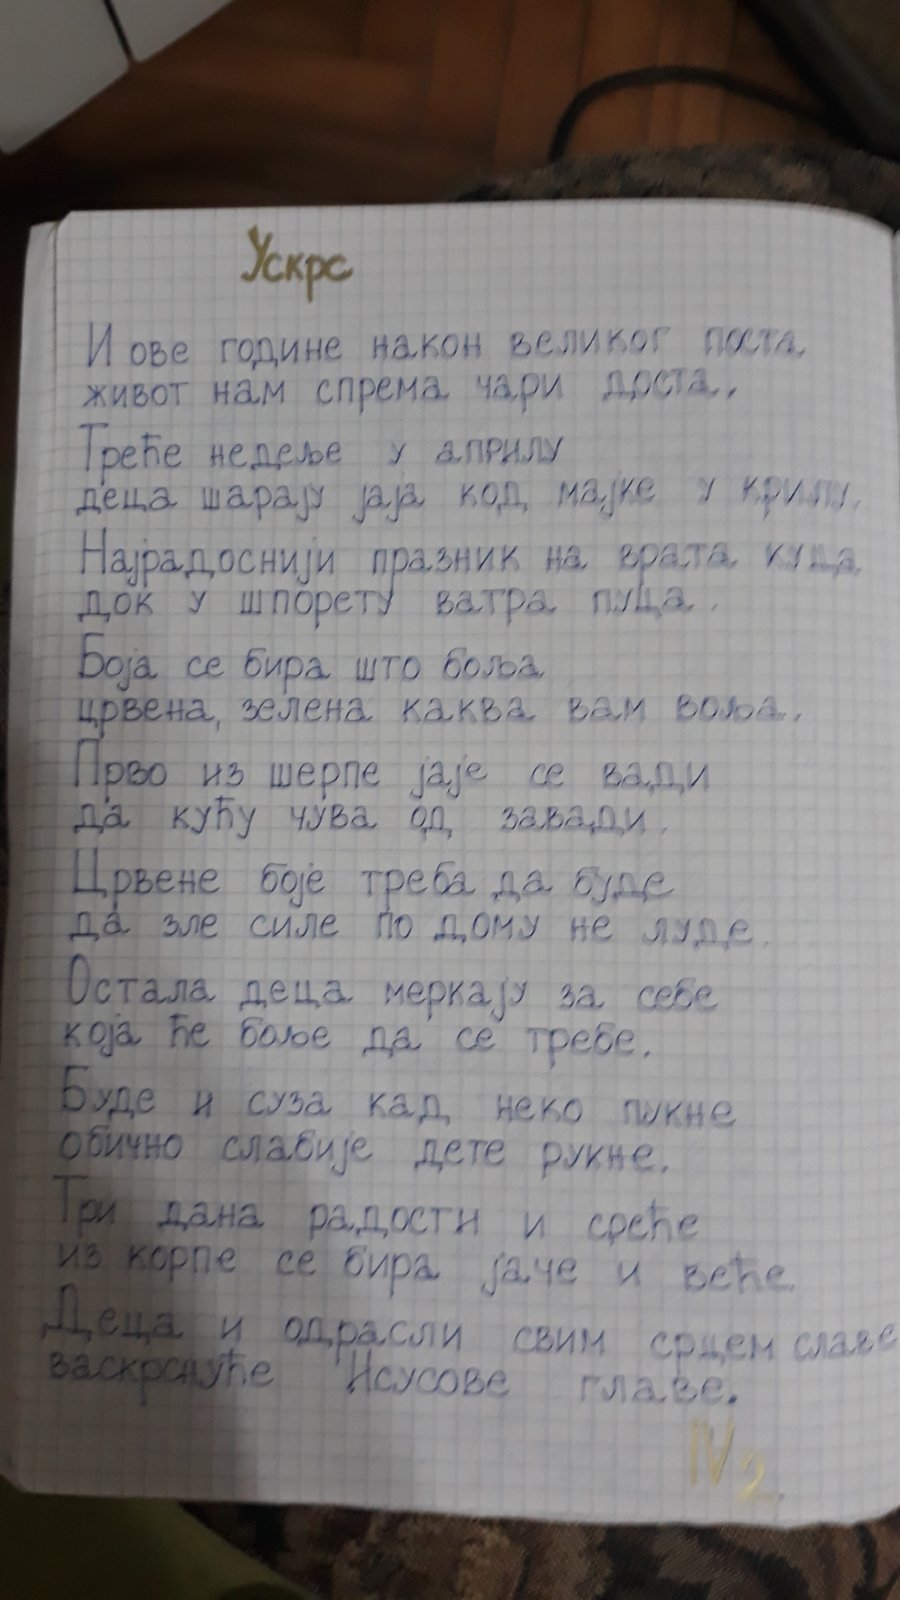 Ускрс
И ове године након великог поста
живот нам спрема чари доста.
Треће недеље у априлу
деца шарају јаја код мајке у крилу.
Најрадоснији празник на врата куца
док у шпорету ватра пуца.
Боја се бира што боља
црвена, зелена каква вам воља.
Прво из шерпе јаје се вади
да кућу чува од завади.
Црвене боје треба да буде
да зле силе по дому не луде.
Остала деца меркају за себе
која ће боље да се требе.
Буде и суза кад неко пукне
обично слабије дете рукне.
Три дана радости и среће
из корпе се бира јаче и веће.
Деца и одрасли свим срцем славе
васкрснуће Исусове главе.
IV2